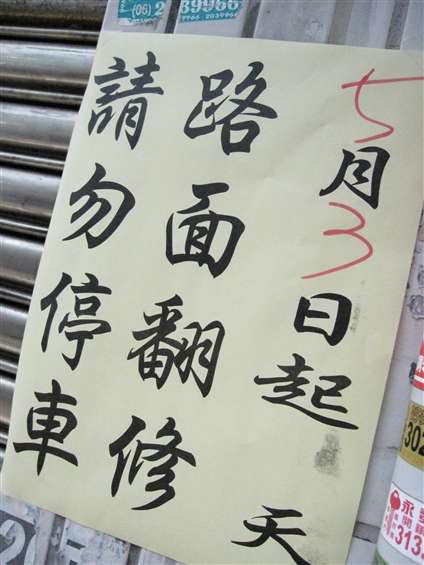 5月3日起 天
路面翻修
請勿停車
(06)
302
永
313